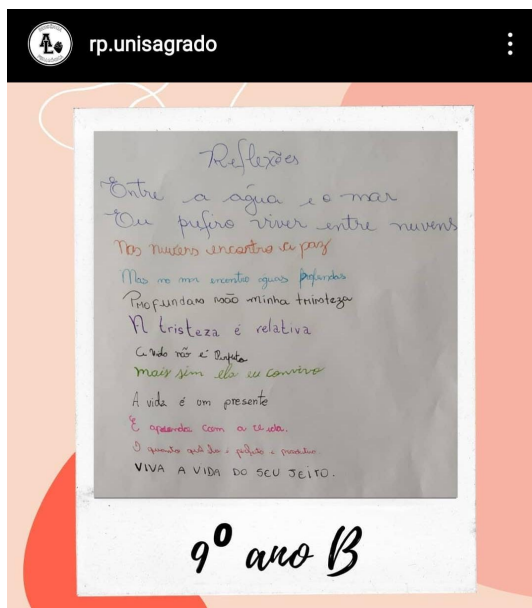 rp.unisagrado
Reflexões
Entre a água e o mar
Eu prefiro viver entre nuvens
Nas nuvens encontro a paz
Mas no mar encontro águas profundas
Profundas são minha tristeza
A tristeza é relativa
não é
mais sim ela eu convivo
A vida é um presente
E aprenda com a vida.
O quanto que é
VIVA A VIDA DO SEU JEITO.
9º ano B